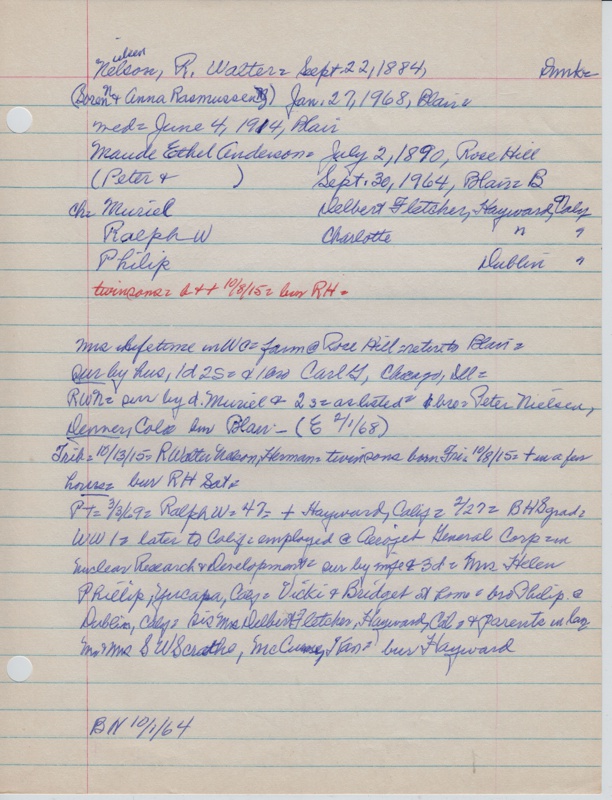 ielsen
Nelson, R. Walter = Sept. 22, 1884,
(Soren N & Anna Rasmussen) Jan. 27, 1968, Blair =
med = June 4, 1914, Blair
Maude Ethel Anderson = July 2, 1890, Rose Hill
(Peter & ) Sept. 30, 1964, Blair = B
ch = Muriel Delbert Fletcher, Hayward, Calif
Ralph W Charlotte " "
Philip Dublin "
twin sons = b & + 10/8/15 = bur RH =
Mrs lifetime in WCo = farm @ Rose Hill = retire to Blair =
sur by hus, 1d 2s = & 1 bro Carl G, Chicago, Ill =
RWN = sur by d. Muriel & 2s = as listed = & bro = Peter Nielsen,
Denver, Colo bur Blair - (E 2/1/68)
Trib = 10/13/15 = R Walter Nelson, Herman = twin sons born Fri = 10/8/15 = + in a few
hours = bur RH Sat =
PT = 3/3/69 = Ralph W = 47 = + Hayward, Calif = 2/27 = BHS grad =
WW 1 = later to Calif = employed @ Aerojet General Corp = in
Nuclear Research & Development = sur by wife & 3d = Mrs Helen
Phillip, Yucapa, Calif = Vicki & Bridget at home = bro Philip @
Dublin, Calif = sis Mrs Delbert Fletcher, Hayward, Cal = & parents in law
Mr & Mrs S W , Kan = bur Hayward
BN 10/1/64